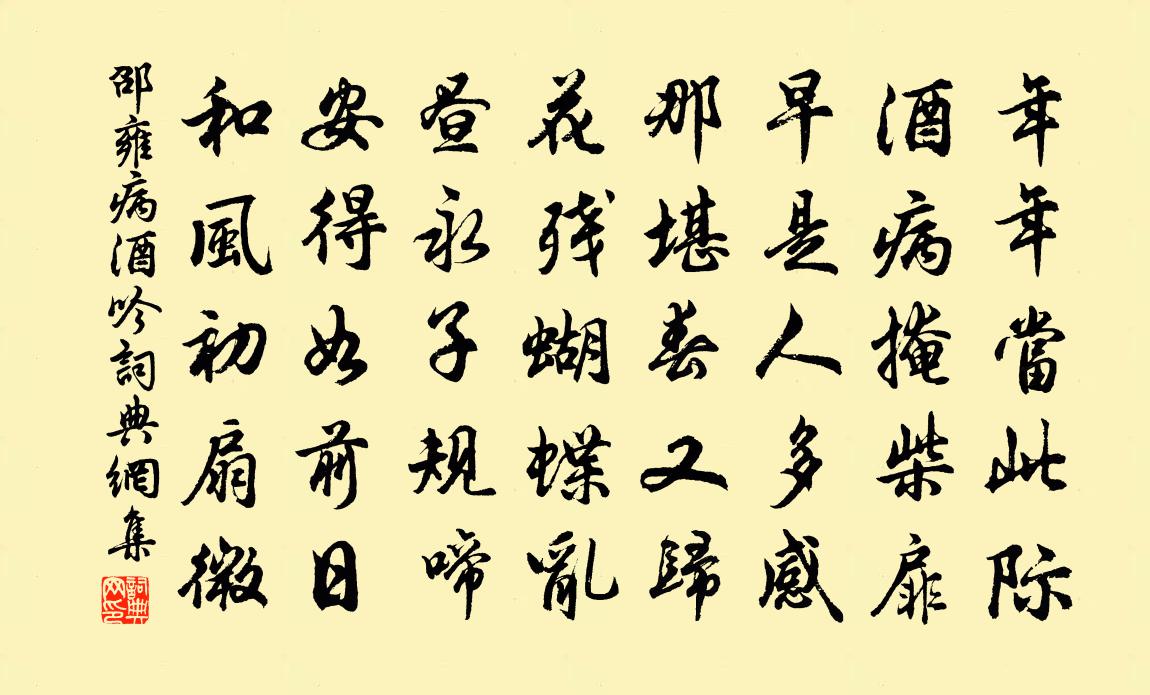 年年當此际
酒病掩柴扉
早是人多感
那堪春又歸
花残蝴蝶亂
昼永子規啼
安得如前日
和風初扇微
邵雍病酒吟詞典網集
詞典网印